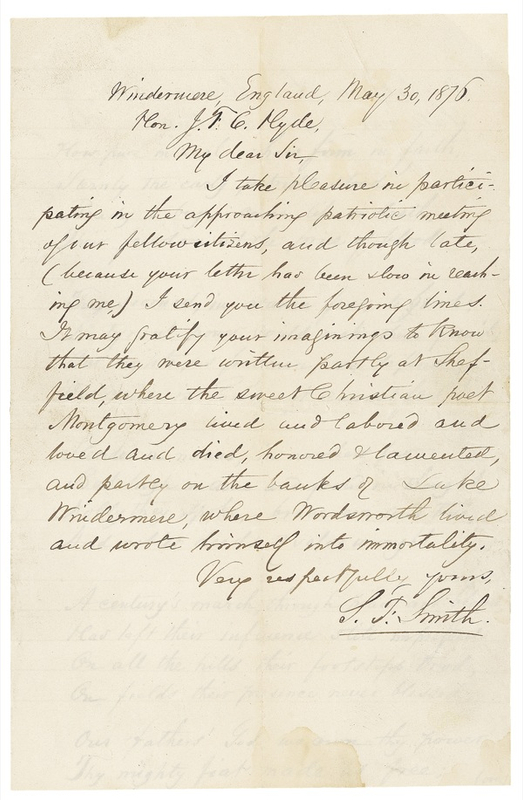 Windermere, England, May 30, 1876.
Hon. J. F. C. Hyde,
My dear Sir,
I take pleasure in partici-
pating in the approaching patriotic meeting
of our fellow citizens, and though late,
(because your letter has been slow in reach-
ing me,) I send you the foregoing lines.
It may gratify your imaginings to know
that they were written partly at Shef-
field, where the sweet Christian poet
Montgomery lived and labored and
loved and died, honored & lamented,
and partly on the banks of Lake
Windermere, where Wordsworth lived
and wrote himself into immortality.
Very respectfully yours,
S. F. Smith.
A century's march
Has left their influence
On all the hills their footsteps
On fields their presence
Our fathers' God
Thy mighty